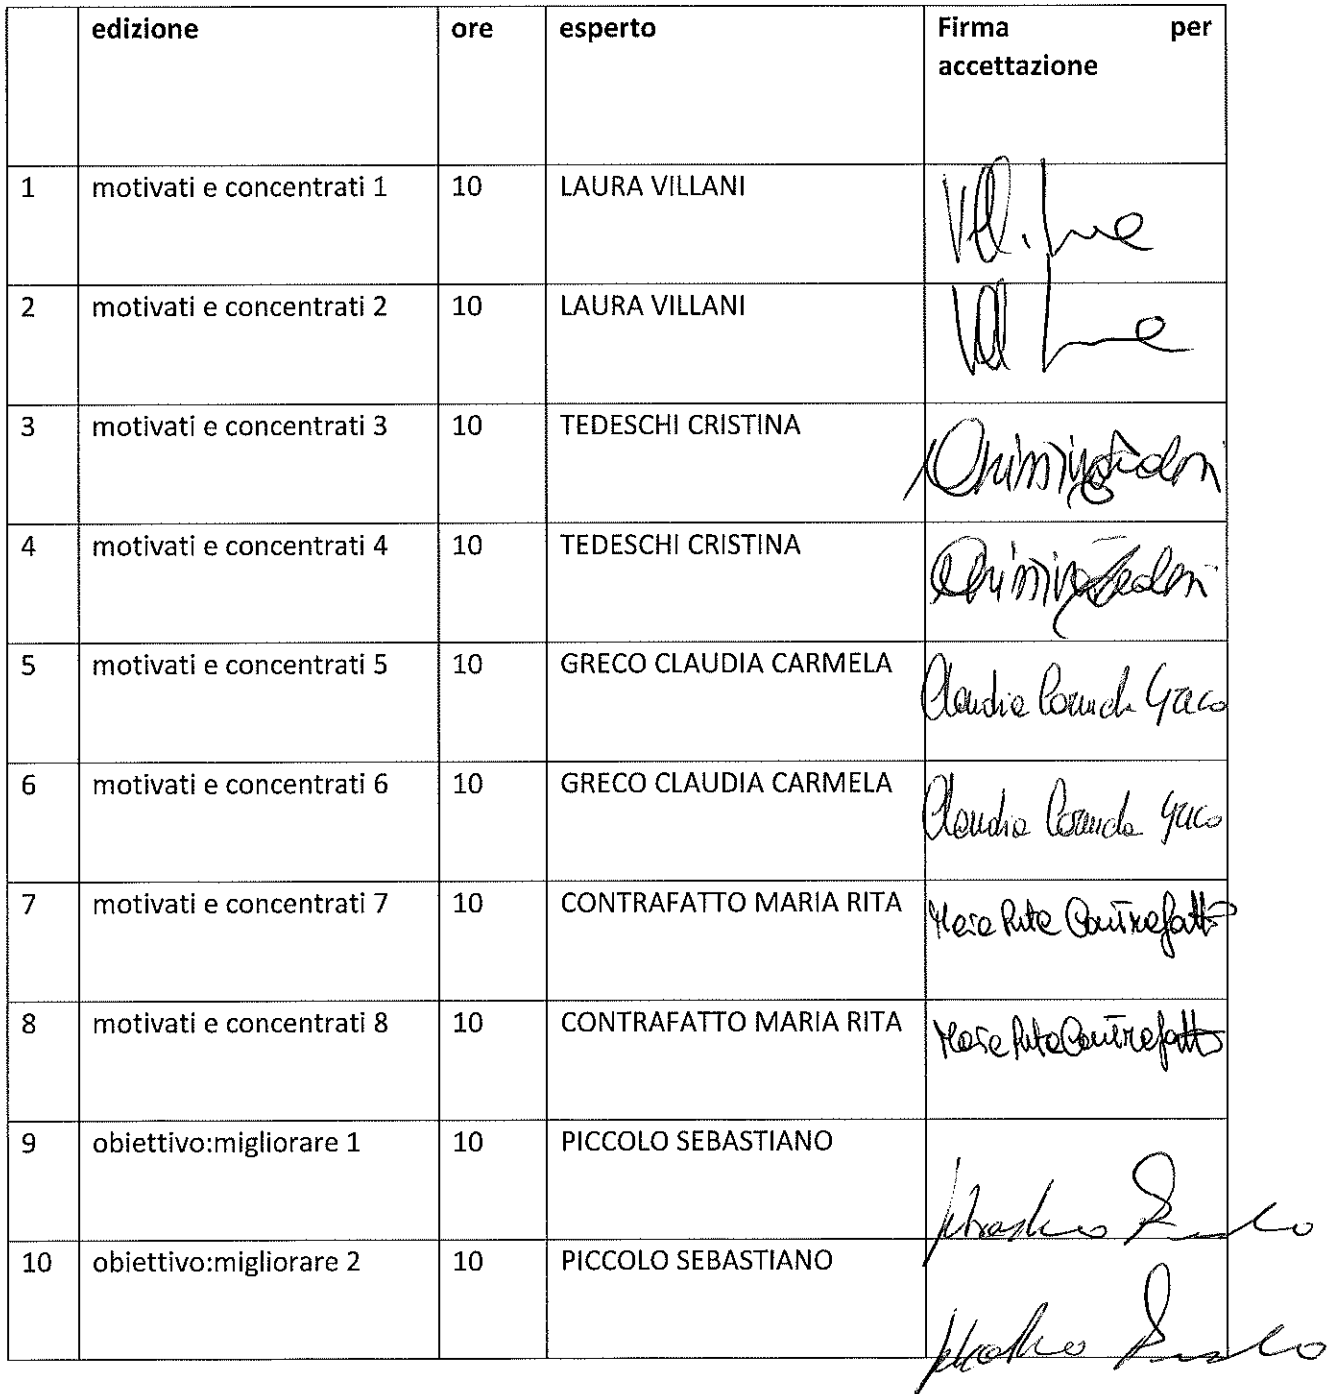 edizione ore esperto Firma per
accettazione
1 motivati e concentrati 1 10 LAURA VILLANI
2 motivati e concentrati 2 10 LAURA VILLANI
3 motivati e concentrati 3 10 TEDESCHI CRISTINA
4 motivati e concentrati 4 10 TEDESCHI CRISTINA
5 motivati e concentrati 5 10 GRECO CLAUDIA CARMELA Claudia Carmela Greco
6 motivati e concentrati 6 10 GRECO CLAUDIA CARMELA Claudia Carmela Greco
7 motivati e concentrati 7 10 CONTRAFATTO MARIA RITA Maria Rita Contrafatto
8 motivati e concentrati 8 10 CONTRAFATTO MARIA RITA Maria Rita Contrafatto
9 obiettivo:migliorare 1 10 PICCOLO SEBASTIANO
10 obiettivo:migliorare 2 10 PICCOLO SEBASTIANO